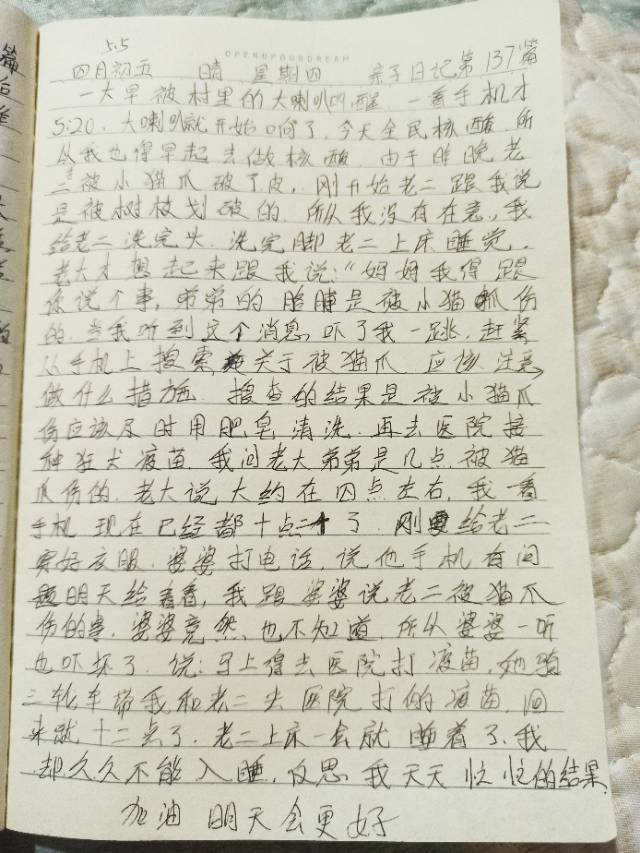 5.5
OPENUPOURDREAM
四月初五 晴 星期四 亲子日记第137篇
一大早被村里的大喇叭叫醒.一看手机才
5:20.大喇叭就开始响了.今天全民核酸.所
以我也得早起去做核酸.由于昨晚老
二被小猫爪破了皮.刚开始老二跟我说
是被树枝划破的.所以我没有在意,我
给老二洗完头.洗完脚老二上床睡觉.
老大才想起来跟我说:“妈妈我得跟
你说个事,弟弟的胳膊是被小猫抓伤
的.当我听到这个消息,吓了我一跳.赶紧
从手机上搜索关于被猫爪.应该注意
做什么措施.搜查的结果是被小猫爪
伤应该及时用肥皂清洗.再去医院接
种狂犬疫苗.我问老大弟弟是几点被猫
爪伤的.老大说大约在四点左右,我看
手机现在已经都十点二十了.刚要给老二
穿好衣服.婆婆打电话,说他手机有问
题明天给看看,我跟婆婆说老二被猫爪
伤的事.婆婆竟然也不知道.所以婆婆一听
也吓坏了.说:马上得去医院打疫苗,她骑
三轮车带我和老二去医院打的疫苗,回
来就十二点了.老二上床一会就睡着了.我
却久久不能入睡,反思我天天忙忙的结果.
加油 明天会更好